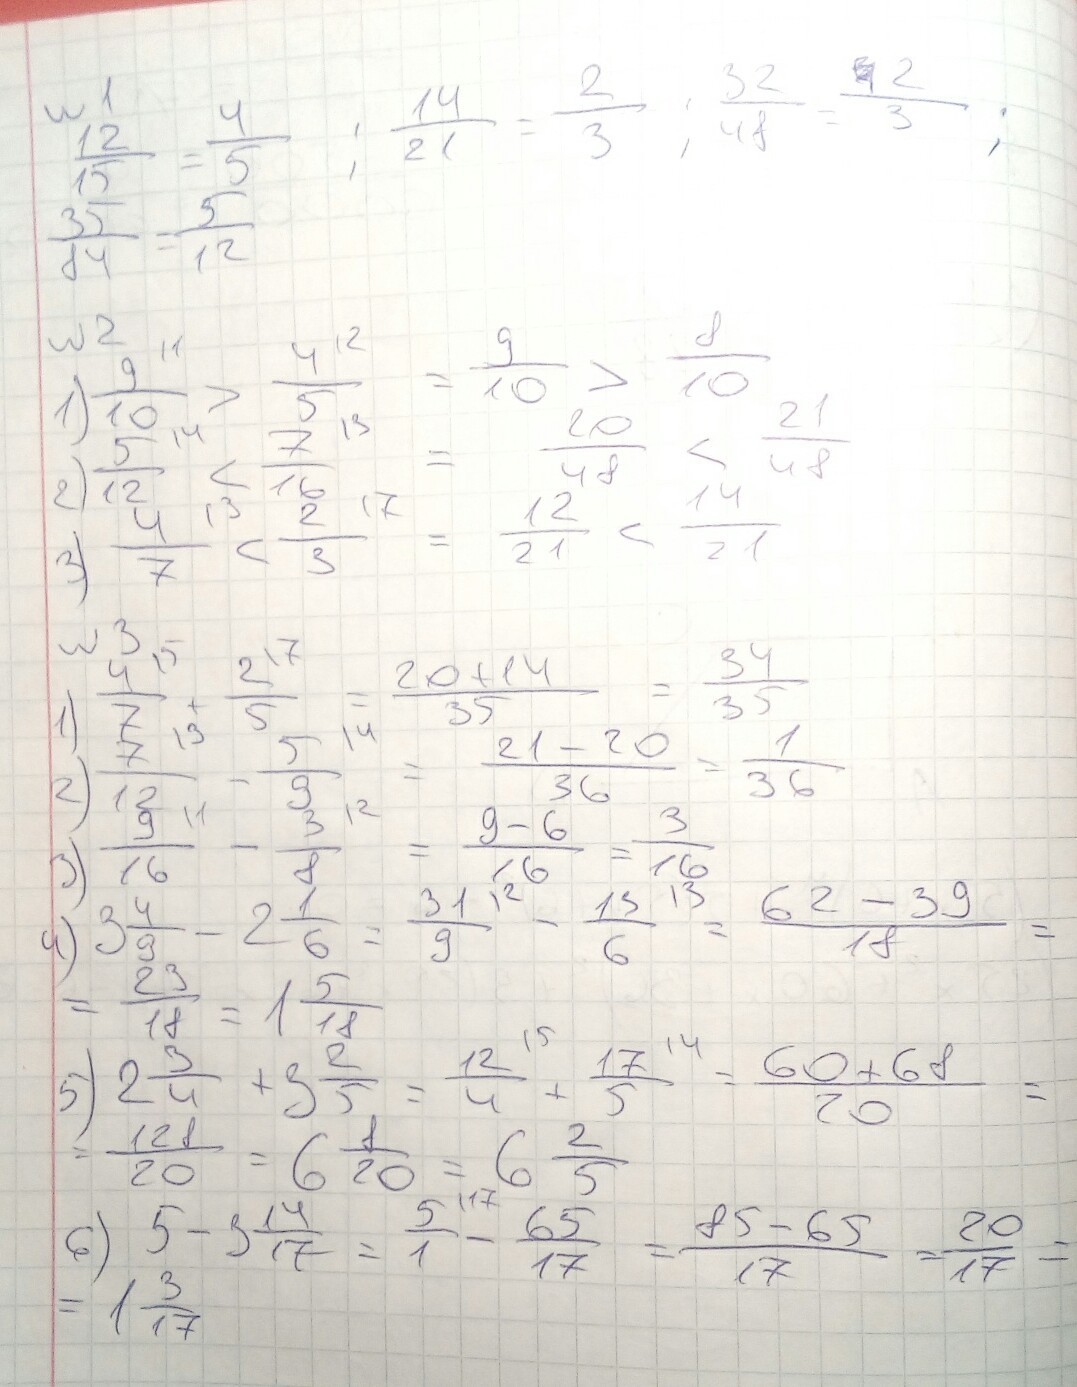 №1
12/15 = 4/5 ; 14/21 = 2/3 ; 32/48 = 2/3 ;
35/84 = 5/12
№2
1) 9/10 |1 > 4/5 |2 = 9/10 > 8/10
2) 5/12 |4 < 7/16 |3 = 20/48 < 21/48
3) 4/7 |3 < 2/3 |7 = 12/21 < 14/21
№3
1) 4/7 |5 + 2/5 |7 = 20+14/35 = 34/35
2) 7/12 |3 - 5/9 |4 = 21-20/36 = 1/36
3) 9/16 |1 - 3/8 |2 = 9-6/16 = 3/16
4) 3 4/9 - 2 1/6 = 31/9 |2 - 13/6 |3 = 62-39/18 =
= 23/18 = 1 5/18
5) 2 3/4 + 3 2/5 = 12/4 |5 + 17/5 |4 = 60+68/20 =
= 128/20 = 6 8/20 = 6 2/5
6) 5 - 3 14/17 = 5/1 |17 - 65/17 = 85-65/17 = 20/17 =
= 1 3/17